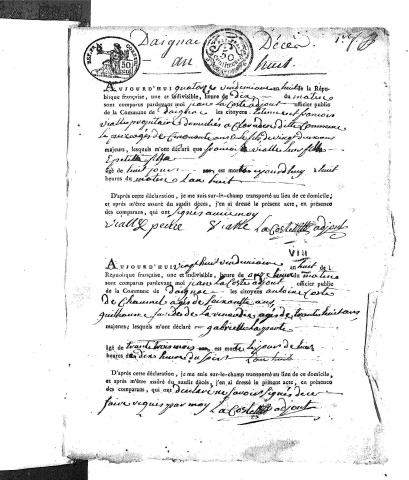 Daignac Décès
an huit
AUJOURD'HUI quatorze vendemiaire an huit de la Répu-
blique française, une et indivisible, heure de dix du matin
sont comparus pardevant moi jean la Coste adjoint officier public
de la Commune de Daignac les citoyens etienne et francois
vialle
majeurs, lesquels m'ont déclaré que francoise vialle leur fille
et petite fille
âgé de huit jours est morte aujourdhuy huit
heures du matin lan huit
D'après cette déclaration, je me suis sur-le-champ transporté au lieu de ce domicile;
et après m'être assuré du susdit décès, j'en ai dressé le présent acte, en présence
des comparans, qui ont signés avec moy
vialle pere vialle la Coste adjoint
VIII
AUJOURD'HUI vingt huit vendemiaire an huit de la
République française, une et indivisible, heure de onze heures du matin
sont comparus pardevant moi jean la Coste adjoint officier public
de la Commune de Daignac les citoyens antoine Coste
de Chaumel agés de soixante ans,
guilhaume de la renaudie agés de trente huit ans,
majeurs, lesquels m'ont déclaré gabrielle
âgé de trente trois mois est morte le jour de hier
heures dix heures du soir lan huit
D'après cette déclaration, je me suis sur-le-champ transporté au lieu de ce domicile,
et après m'être assuré du susdit décès, j'en ai dressé le présent acte, en présence
des comparans, qui ont declaré ne savoir signés de ce
faire requis par moy la Coste adjoint